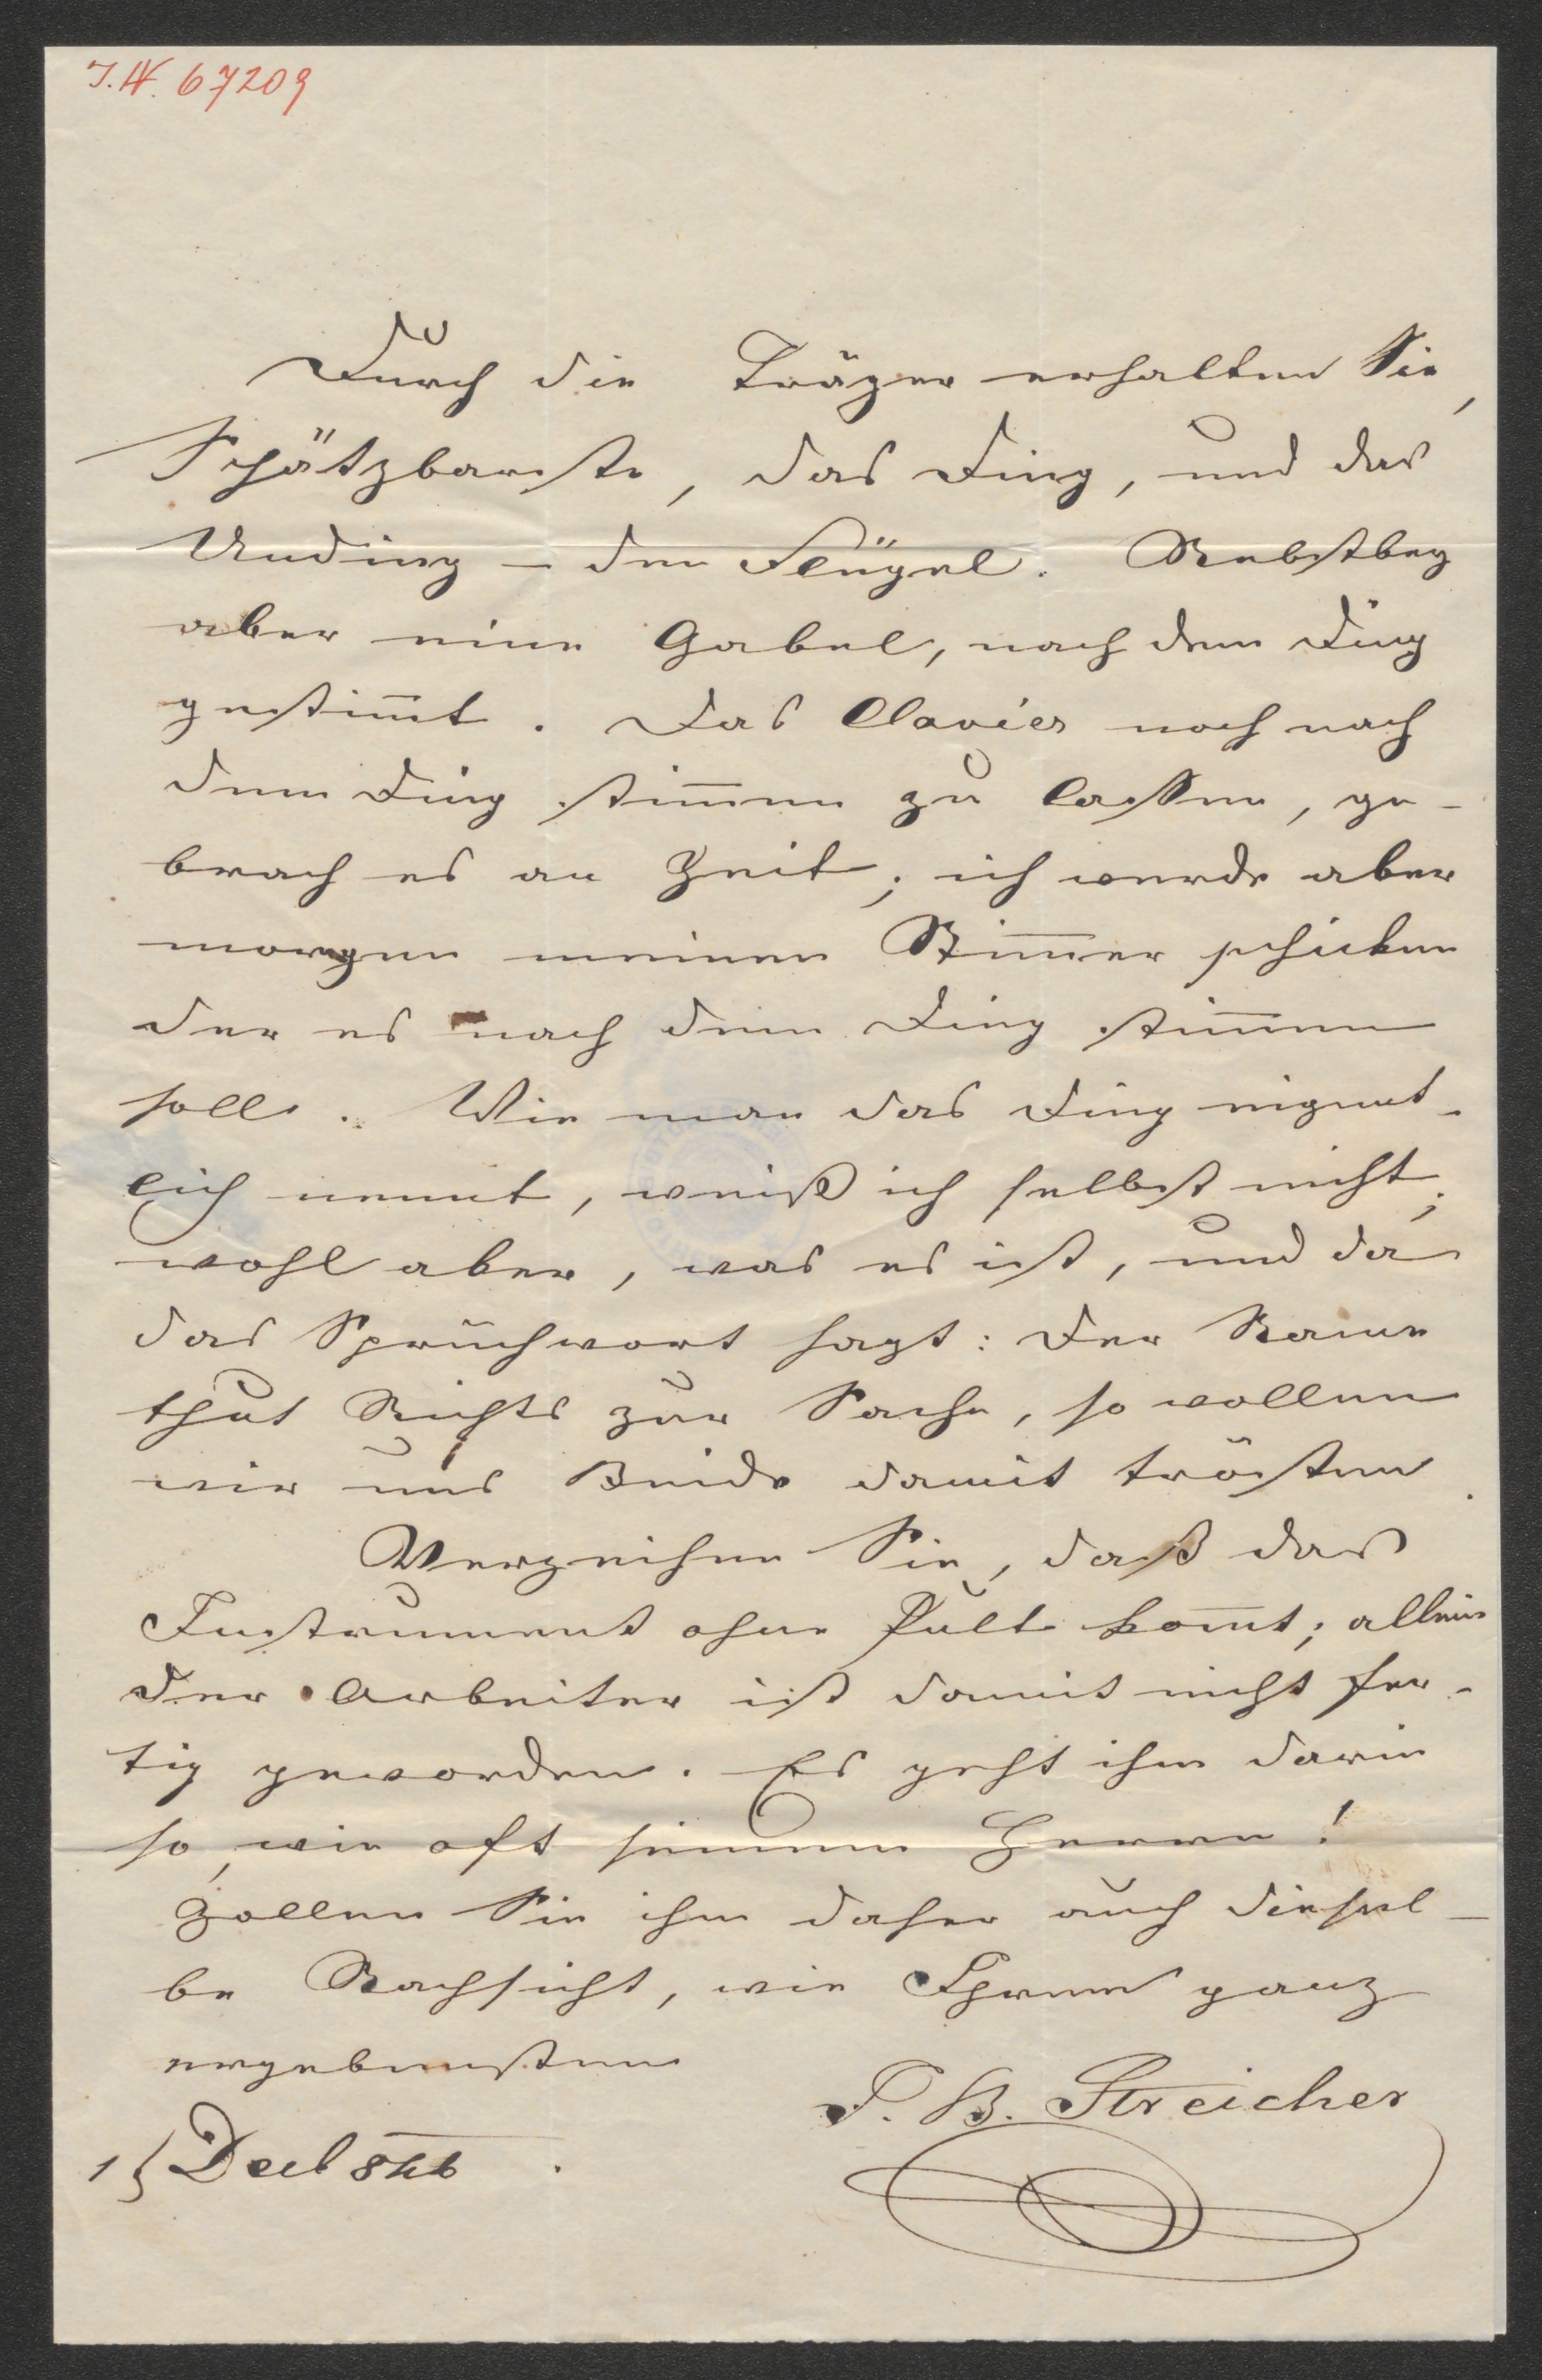 I.N. 67209
Durch die Träger erhalten Sie,
Schätzbarste, das Ding, und das
Unding – den Flügel. Nebstbey
aber eine Gabel, nach dem Ding
gestim̅t. Das Clavier noch nach
dem Ding stim̅en zu lassen, ge-
brach es an Zeit; ich werde aber
morgen meinen Stim̅er schicken
der es nach dem Ding stim̅en
solle. Wie man das Ding eigent-
lich nennt, weiß ich selbst nicht;
wohl aber, was es ist, und da
das Sprüchwort sagt: Der Name
thut Nichts zur Sache, so wollen
wir uns Beide damit trösten.
Verzeihen Sie, daß das
Instrument ohne Pult kom̅t; allein
der Arbeiter ist damit nicht fer-
tig geworden. Es geht ihm darin
so, wie oft seinem Herrn!
Zollen Sie ihm daher auch diesel-
be Nachsicht, wie Ihrem ganz
ergebensten
J. B. Streicher
15 Decb 846.